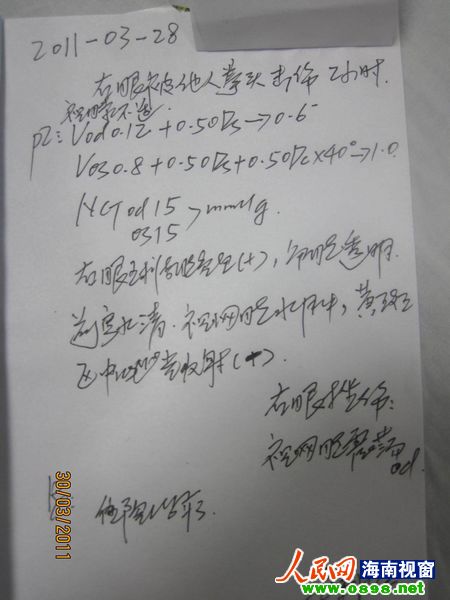 2011-03-28
右眼被他人拳头击伤2小时.
视物不适.
PE: Vod 0.12 +0.50Ds→0.6
Vos 0.8 +0.50Ds+0.50Dc×40°→1.0
NCT od 15 >mmHg.
os 15
右眼 (+), 角膜透明.
前房水清. 视网膜水肿, 黄斑
区中心凹光反射(+).
右眼挫伤:
视网膜震荡 od.
30/03/2011
人民网 海南视窗
www.0898.net